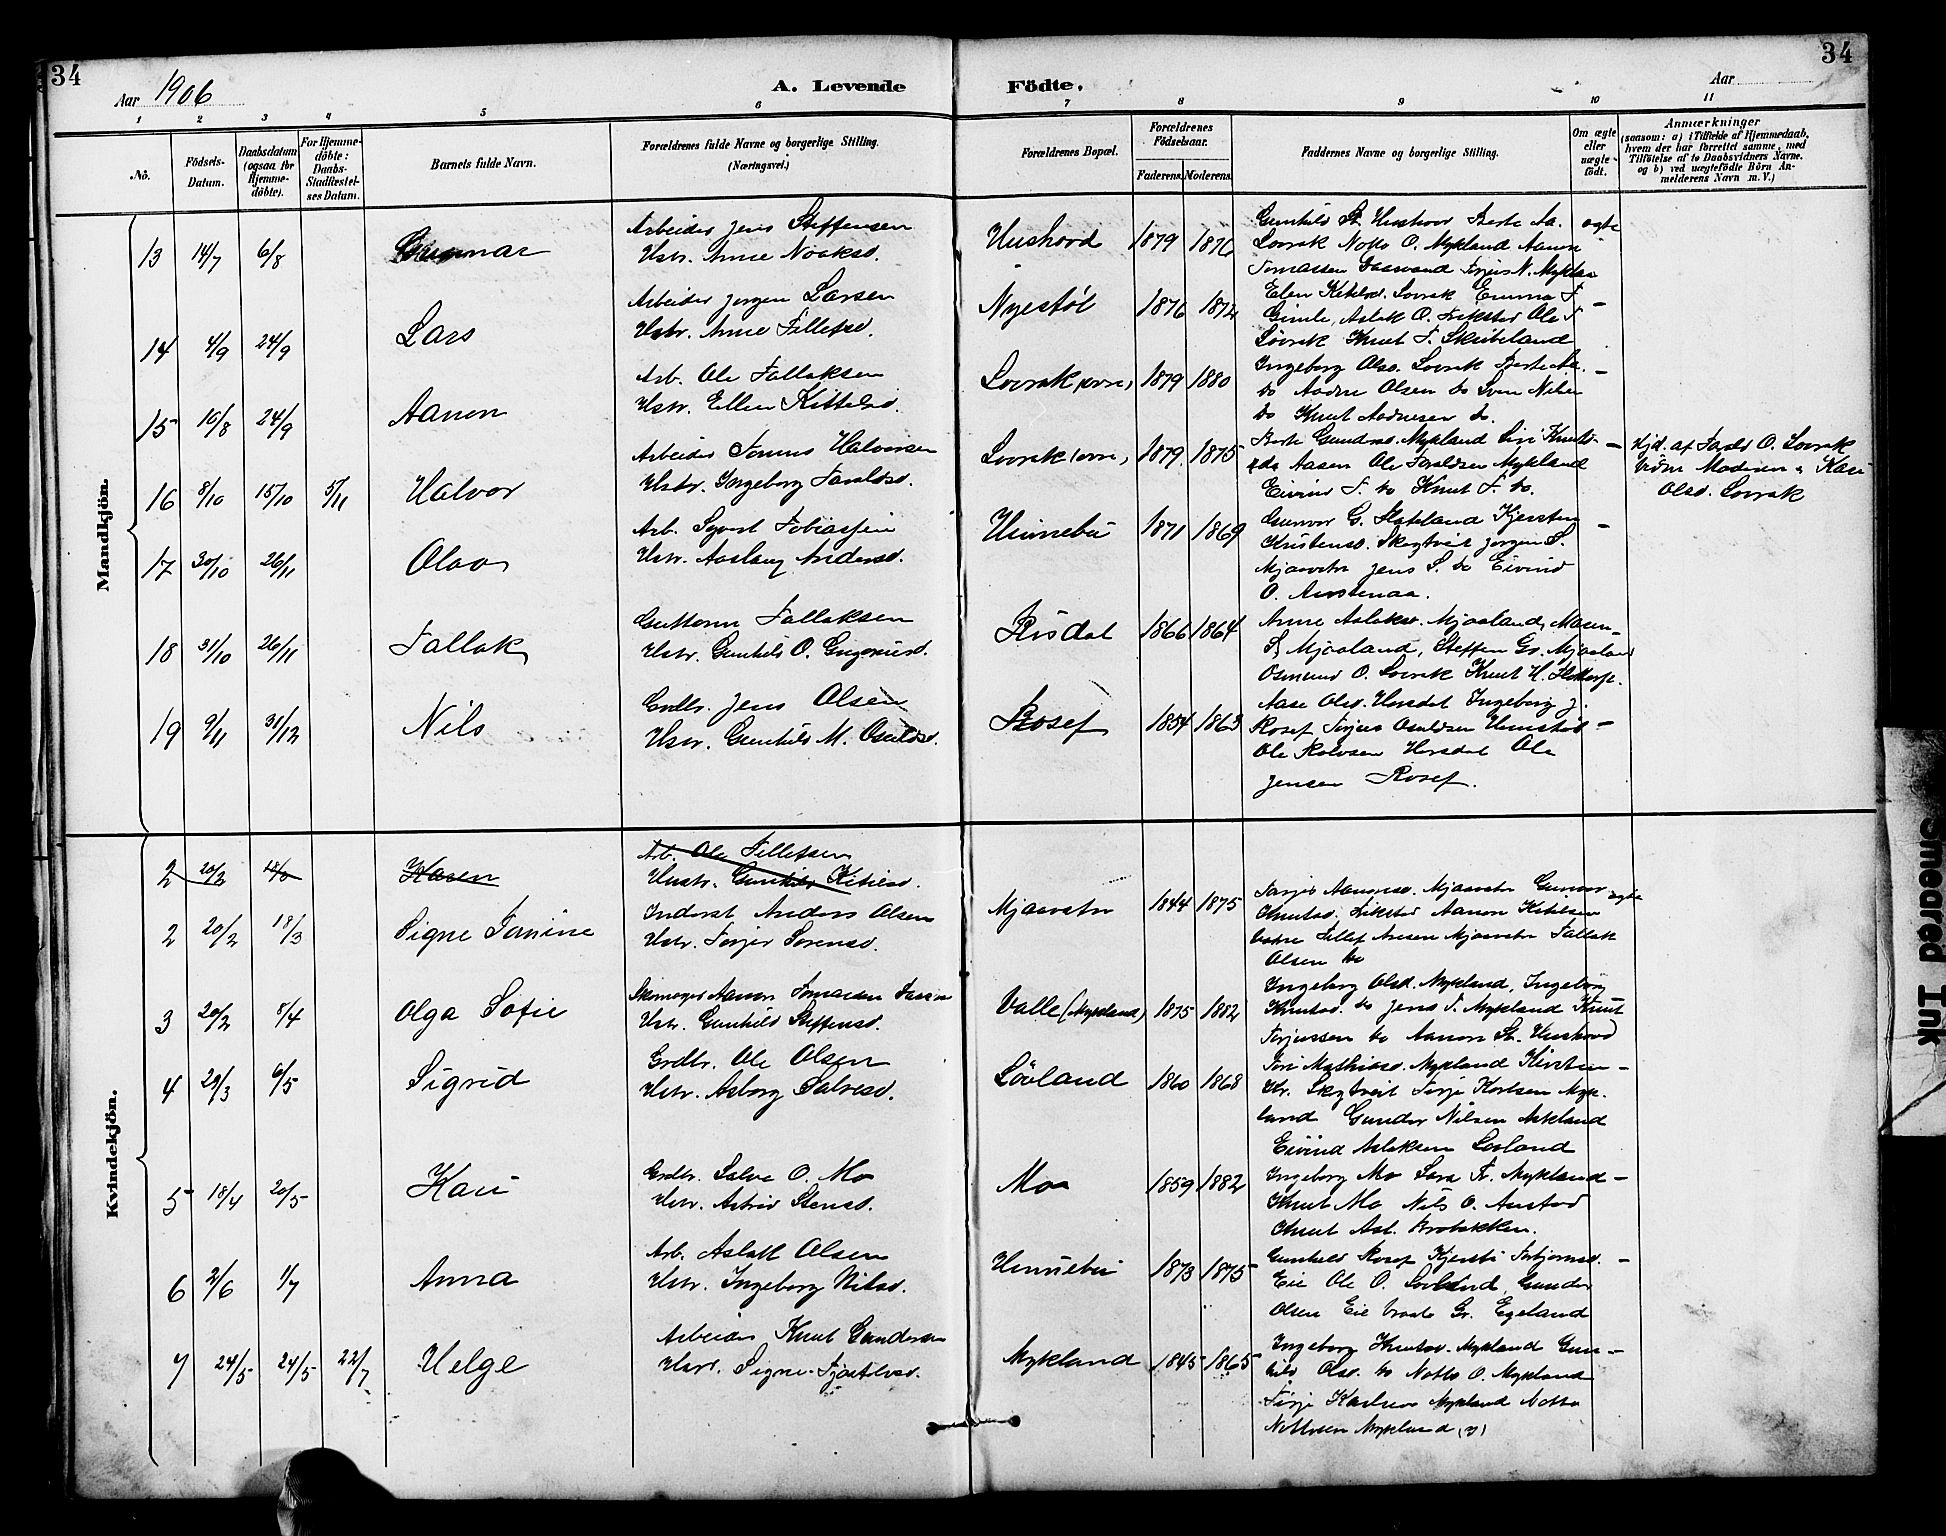 34
Aar 1906
A. Levende
Födte.
Aar
34
1 2 3 4 5 6 7 8 9 10 11
No.
Födsels-Datum.
Daabsdatum (ogsaa for Hjemme-döbte).
For Hjemme-döbte: Daabs-Stadfæstel-ses Datum.
Barnets fulde Navn.
Forældrenes fulde Navne og borgerlige Stilling. (Næringsvei.)
Forældrenes Bopæl.
Forældrenes Födselsaar.
Faderens. Moderens.
Faddernes Navne og borgerlige Stilling.
Om ægte eller uægte födt.
Anmærkninger
(saasom: a) i Tilfælde af Hjemmedaab, hvem der har forrettet samme, med Tilföielse af to Daabsvidners Navne. og b) ved uægtefödte Börn An-melderens Navn m. V.)
Mandkjön.
13 14/7 6/8 Gunnar
Arbeider Jens Steffensen
Hstr. Anne Noaksd.
Hushovd 1879 1876
Gunhild St. Hushovd Berte Aa.
Lovrak Notto O. Mykland Aanon
Tomassen Terjus N. Mykland
ægte
14 4/9 24/9 Lars
Arbeider Jørgen Larsen
Hstr. Anne Tellefsd.
Nyestøl 1876 1872
Elen Ketilsd. Lovrak Emma T.
Gimle, Aslak O. Fikstad Ole T
Lövrak Knut T. Skribeland
–
15 10/8 24/9 Aanon
Arb. Ole Tallaksen
Hstr. Ellen Kittelsd.
Lovrak (øvre) 1879 1880
Ingeborg Olsd. Lovrak Berte Aa.
do Aadne Olsen do Sven Nilsen
do Knut Aadnesen do.
–
16 8/10 15/10 5/11 Halvor
Arbeider Tomas Halvorsen
Hstr. Ingeborg Taraldsd.
Lovrak (øvre) 1879 1875
Berte Gundersd. Mykland Siri Knuts-
da Aasen Ole Taraldsen Mykland
Eivind T. do Knut T. do.
–
Hjd. af Tarald O. Lovrak
Vidne Moderen & Kari
Olsd. Lovrak
17 30/10 26/11 Olav
Arb. Syvert Tobiassen
Hstr. Aaslaug Andersd.
Hinnebu 1871 1869
Gunvor G. Flateland Kjersten
Kristensd. Skogtveit Jørgen S.
Mjaavatn Jens S. do Eivind
O. Austenaa.
–
18 31/10 26/11 Tallak
Guttorm Tallaksen
Hstr. Gunhild O.
Risdal 1866 1864
Anne Aslaksd. Mjaaland, Maren
S. Mjaaland, Steffen Gr. Mjaaland
Osmund O. Lovrak Knut H.
19 9/11 31/12 Nils
Grdbr. Jens Olsen
Hstr. Gunhild M. Osuldsd.
Rosef 1854 1863
Aase Olsd. Horsdal Ingeborg J.
Rosef Terjus Osuldsen
Ole Rolvsen Horsdal Ole
Jensen Rosef.
–
Kvindekjön.
2 20/2 18/3 Karen
Arb. Ole Tellefsen
Hustr. Gunhild Ketilsd.
2 20/2 18/3 Signe Tomine
Inderst Anders Olsen
Hstr. Torjer Sorensd.
Mjaavatn 1844 1875
Torjer Aanonsd. Mjaavatn Gunvor
Knutsd. Fikstad Aanon Ketilsen
Tellef Mjaavatn Tallak
Olsen do
ægte
3 20/2 8/4 Olga Sofie
Skomager Aanon Tomassen
Hstr. Gunhild Steffensd.
Valle (Mykland) 1875 1882
Ingeborg Olsd. Mykland, Ingeborg
Knutsd. do Jens T. Mykland Knut
Terjussen do Aanon St. Hushovd
4 29/3 6/5 Sigrid
Grdbr. Ole Olsen
Hstr. Asborg Salvesd.
Lövland 1860 1868
Tori Mathiasd. Mykland Kirsten
Kr. Skogtveit Terje Karlsen Myk-
land Gunder Nilsen Askland
Eivind Aslaksen Lovland
–
5 18/4 20/5 Kari
Grdbr. Salve O. Mo
Hstr. Astrid Stensd.
Mo 1859 1882
Ingeborg Mo Sara T. Mykland
Knut Mo Nils O. Austad
Knut Asl. Brobakken.
–
6 2/6 1/7 Anna
Arb. Aslak Olsen
Hstr. Ingeborg Nilsd.
Hinnebu 1873 1875
Gunhild Rosef Kjersti Torbjørnsd.
Eie Ole O. Lovland, Gunder
Olsen Eie Gr. Egeland
–
7 24/5 24/5 22/7 Helge
Arbeider Knut Gundersen
Hstr. Signe Tjøstelvsd.
Mykland 1845 1865
Ingeborg Knutsd. Mykland Gun-
hild Olsd. do Notto O. Mykland
Terje Karlsen Mykland Notto
Nottosen Mykland
–
Smeared Ink